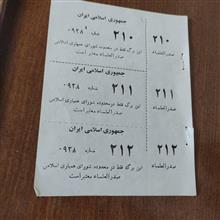 جمهوری اسلامی ایران
۲۱۰ شماره ۰۹۲۸
این برگه فقط در محدوده شورای همیاری اسلامی
صدرالعلماء معتبر است
۲۱۰
صدرالعلماء
جمهوری اسلامی ایران
۲۱۱ شماره ۰۹۲۸
این برگه فقط در محدوده شورای همیاری اسلامی
صدرالعلماء معتبر است
۲۱۱
صدرالعلماء
جمهوری اسلامی ایران
۲۱۲ شماره ۰۹۲۸
این برگه فقط در محدوده شورای همیاری اسلامی
صدرالعلماء معتبر است
۲۱۲
صدرالعلماء